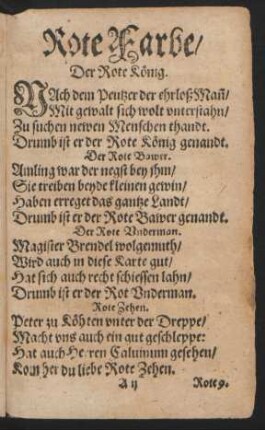 Rote Farbe/
Der Rote König.
NAch dem Peutzer der ehrloß Mañ/
Mit gewalt sich wolt vnterstahn/
Zu suchen newen Menschen thandt.
Drumb ist er der Rote König genandt.
Der Rote Bawer.
Amling war der negst bey jhm/
Sie treiben beyde kleinen gewin/
Haben erreget das gantze Landt/
Drumb ist er der Rote Bawer genandt.
Der Rote Vnderman.
Magister Brendel wolgemuth/
Wird auch in diese Karte gut/
Hat sich auch recht schiessen lahn/
Drumb ist er der Rot Vnderman.
Rote Zehen.
Peter zu Köhten vnter der Dreppe/
Macht vns auch ein gut geschleppe:
Hat auch Herren Caluinum gesehen/
Kom her du liebe Rote Zehen.
A ij Rote 9.